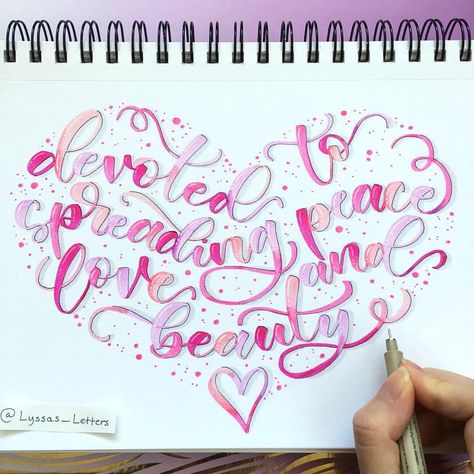 devoted to
spreading peace
love and
beauty
@Lyssas_Letters